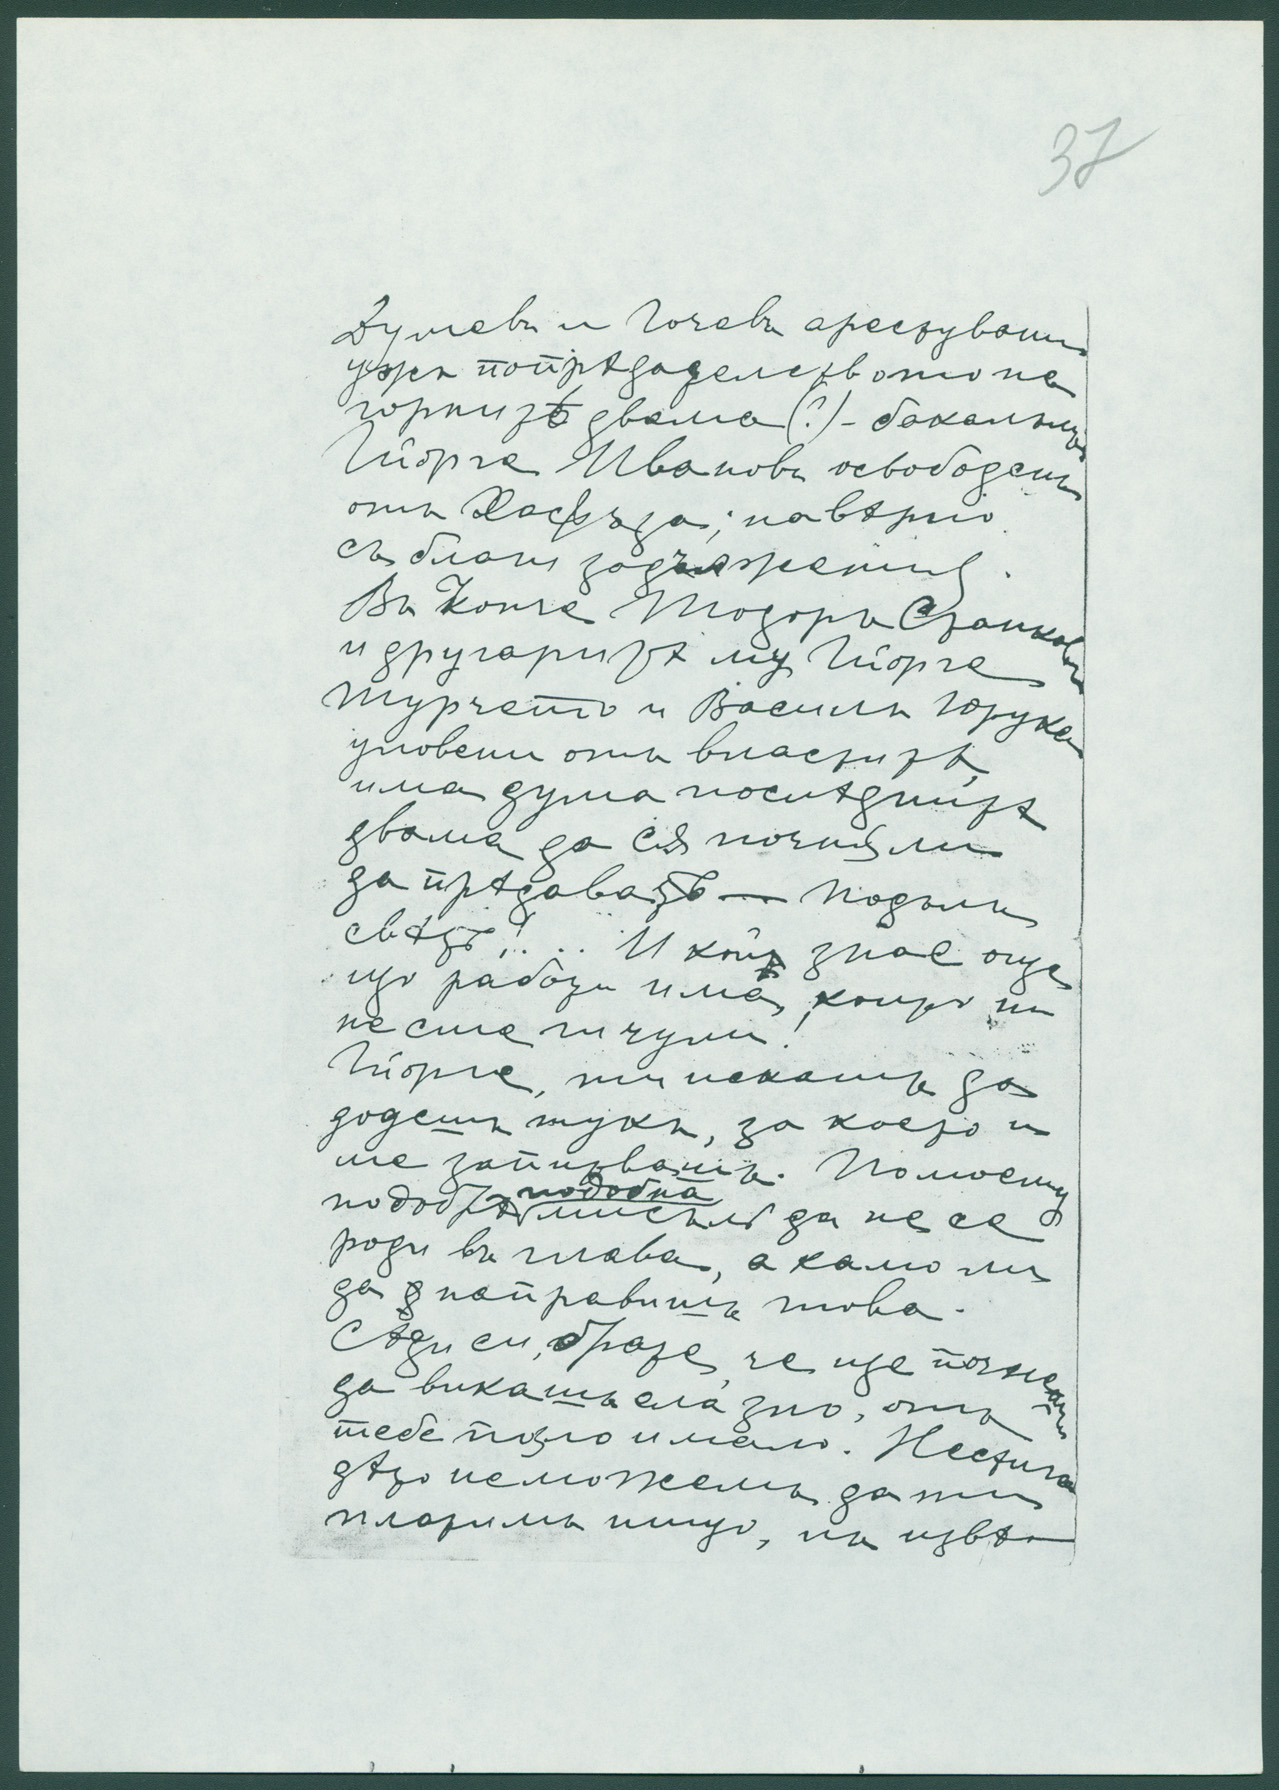 37
Думевъ и Гочевъ арестувани
ужъ по прѣдателството на
горнитѣ двама (?) – бакалина
Гйорге Ивановъ освободенъ
отъ Хасфѫза; навѣрно
съ благи задължения.
Въ Конче Тодоръ Станковъ
и другаритѣ му Гйорге
Турчето и Василъ Юрука
уловени отъ властитѣ,
има дума послѣднитѣ
двама да сѫ почнѫли
да прѣдаватъ — подълъ
свѣтъ!... И кой знае още
що работи има, които ний
не сме ги чули!
Гйорге, ти искашъ да
додешъ тука, за което и
ме запитвашъ. По моему
подобна
мисъль да не се
роди въ глава, а камо ли
да направишъ това.
Сѣди си, брате, че ще почнешъ
да викашъ ела зло, отъ
тебе по зло имало. Нестига
дѣто неможемъ да ти
платимъ нищо, нъ извѣ-